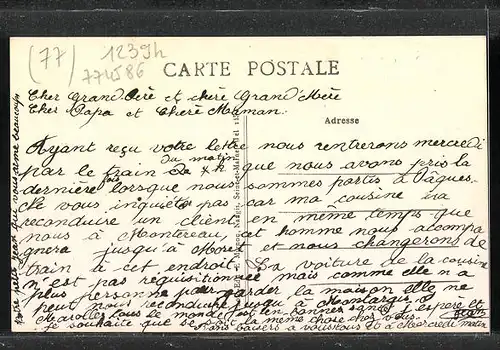 (77)
1239h
774586
CARTE POSTALE
Adresse
Cher Grand Père et chère Grand'Mère
Cher Papa et Chere Maman.
Ayant reçu votre lettre nous rentrerons mercredi
du matin
par le train que nous avons pris la
dernière fois lorsque nous sommes partis à Pâques.
Ne vous inquiétés pas car ma cousine ira
reconduire un client en même temps que
nous à Montereau, cet homme nous accompa
gnera jusqu'à Moret et nous changerons de
train à cet endroit. La voiture de la cousine
n'est pas réquisitionnée mais comme elle n'a
plus personne pour garder la maison elle ne
peut nous reconduire jusqu'à Montargis.
Marolles tous le monde est en bonnes santé J'espère et
je souhaite que se soit la même chose chez vous.
Bons baisers a vous tous et à Mercredi matin
Votre petit Jean qui vous aime beaucoup
Jean